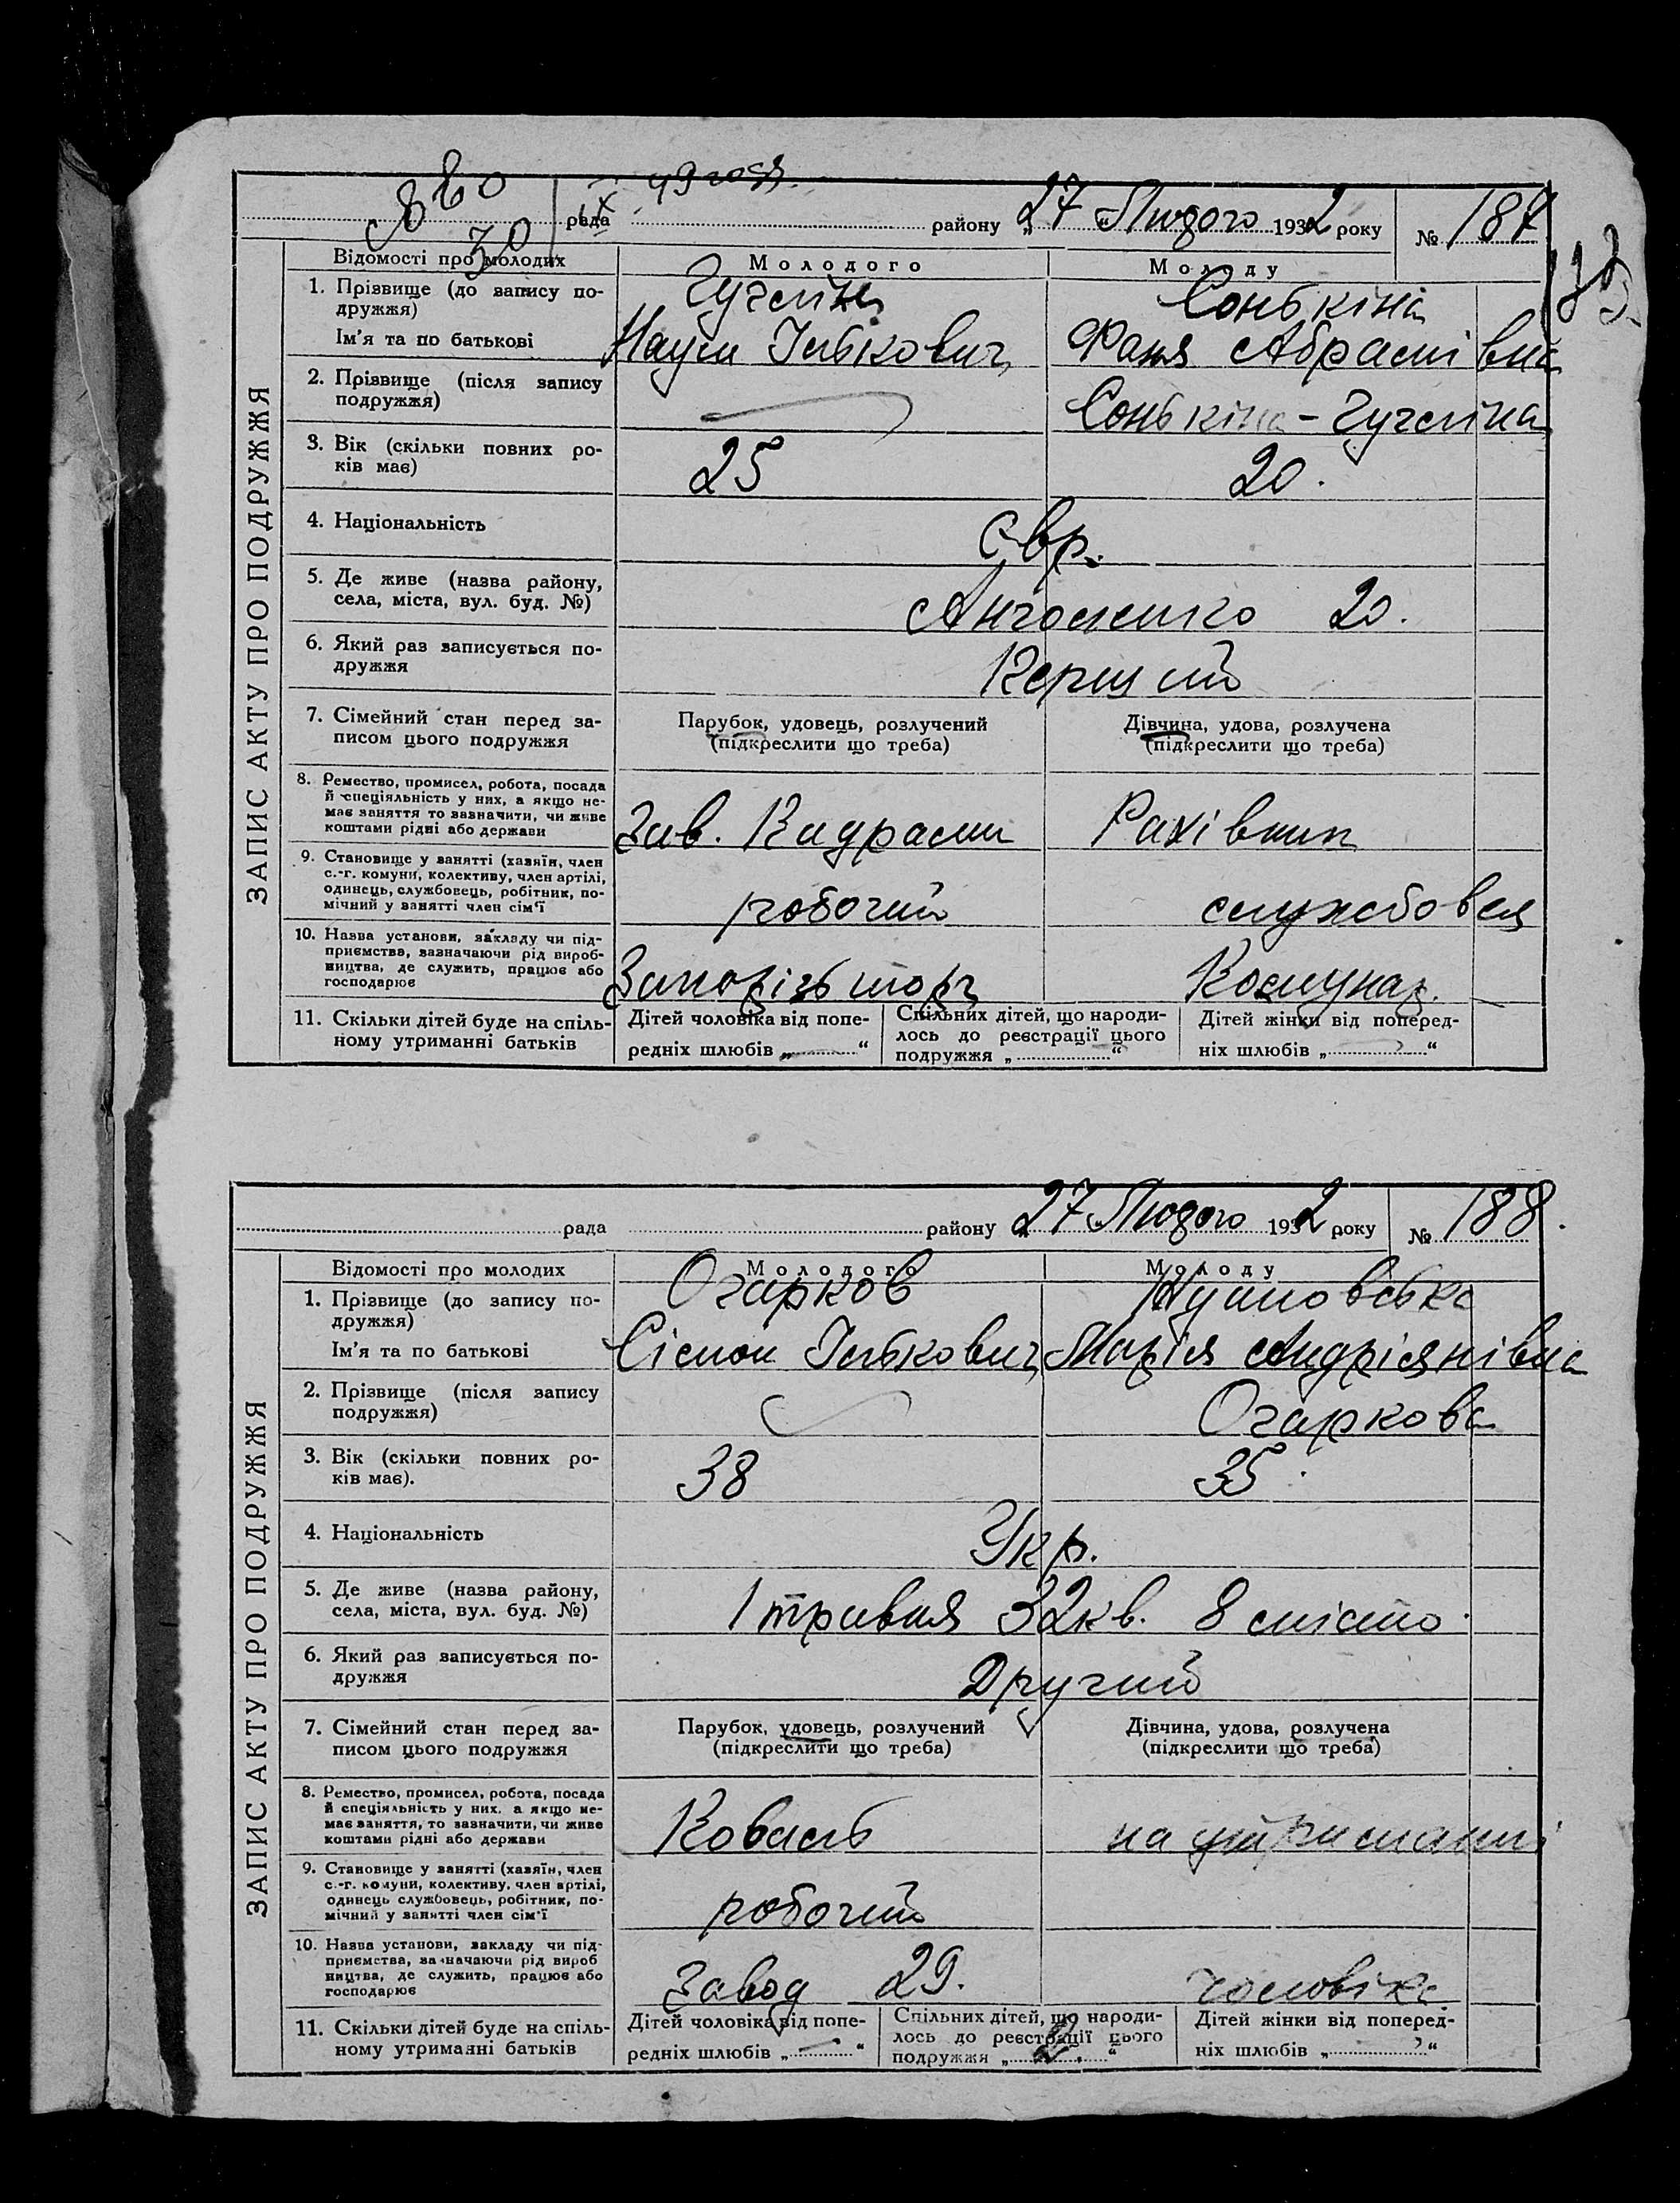 880
30
IX 49 года.
рада района району „27" Лютого 1932 року № 187
Відомості про молодих Молодого Молоду
1. Прізвище (до запису подружжя) Сонькіна
Ім'я та по батькові Наум Ількович Фаня Абрамівна
2. Прізвище (після запису
подружжя)
3. Вік (скільки повних ро-
ків має) 25 20.
4. Національність Євр.
5. Де живе (назва району,
села, міста, вул. буд. №) 20.
6. Який раз записується по-
дружжя Перший
7. Сімейний стан перед за-
писом цього подружжя
Парубок, удовець, розлучений
(підкреслити що треба)
Дівчина, удова, розлучена
(підкреслити що треба)
8. Ремество, промисел, робота, посада
й спеціяльність у них, а якщо не-
має заняття то зазначити, чи живе
коштами рідні або держави
Зав. Кадрами Рахівник
9. Становище у занятті (хазяїн, член
с.-г. комуни, колективу, член артілі,
одинець, службовець, робітник, по-
мічний у занятті член сім'ї
робочий службовец
10. Назва установи, закладу чи під-
приємства, зазначаючи рід вироб-
ництва, де служить, працює або
господарює
Запорізьторг Комунар.
11. Скільки дітей буде на спіль-
ному утриманні батьків
Дітей чоловіка від попе-
редніх шлюбів „ “
Спільних дітей, що народи-
лось до реєстрації цього
подружжя „ “
Дітей жінки від поперед-
ніх шлюбів „ “
ЗАПИС АКТУ ПРО ПОДРУЖЖЯ
рада району „27 Лютого 1932 року № 188.
Відомості про молодих Молодого Молоду
1. Прізвище (до запису по-
дружжя) Огарков
Ім'я та по батькові Сімон Ількович Марія Андріянівна
2. Прізвище (після запису
подружжя) Огаркова
3. Вік (скільки повних ро-
ків має). 38 35.
4. Національність Укр.
5. Де живе (назва району,
села, міста, вул. буд. №) 1 травня 32 кв. 8 місто.
6. Який раз записується по-
дружжя Другий
7. Сімейний стан перед за-
писом цього подружжя
Парубок, удовець, розлучений
(підкреслити що треба)
Дівчина, удова, розлучена
(підкреслити що треба)
8. Ремество, промисел, робота, посада
й спеціяльність у них, а якщо не-
має заняття, то зазначити, чи живе
коштами рідні або держави
Коваль на утриманні
9. Становище у занятті (хазяїн, член
с.-г. комуни, колективу, член артілі,
одинець службовець, робітник, по-
мічний у занятті член сім'ї
робочий
10. Назва установи, закладу чи під-
приємства, зазначаючи рід вироб
ництва, де служить, працює або
господарює
Завод 29. чоловіка
11. Скільки дітей буде на спіль-
ному утриманні батьків
Дітей чоловіка від попе-
редніх шлюбів „ “
Спільних дітей, що народи-
лось до реєстрації цього
подружжя „ 2. “
Дітей жінки від поперед-
ніх шлюбів „ “
ЗАПИС АКТУ ПРО ПОДРУЖЖЯ